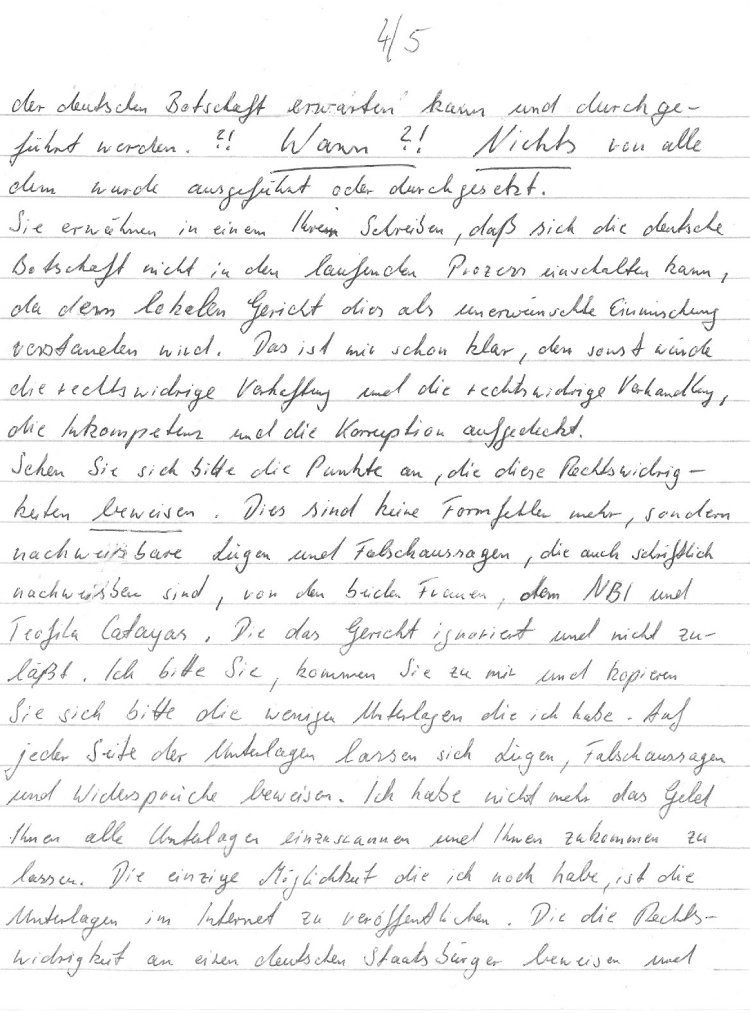 4/5
der deutschen Botschaft erwarten kann und durchge-
führt werden. ?! Wann ?! Nichts von alle
dem wurde ausgeführt oder durchgesetzt.
Sie erwähnen in einem Ihrein Schreiben, daß sich die deutsche
Botschaft nicht in den laufenden Prozess einschalten kann,
da dem lokalen Gericht dies als unerwünschte Einmischung
verstanden wird. Das ist mir schon klar, denn sonst würde
die rechtswidrige Verhaftung und die rechtswidrige Verhandlung,
die Inkompetenz und die Korruption aufgedeckt.
Sehen Sie sich bitte die Punkte an, die diese Rechtswidrig-
keiten beweisen. Dies sind keine Formfehler mehr, sondern
nachweißbare Lügen und Falschaussagen, die auch schriftlich
nachweißben sind, von den beiden Frauen, dem NBI und
Teofila Catayas. Die das Gericht ignoriert und nicht zu-
läßt. Ich bitte Sie, kommen Sie zu mir und kopieren
Sie sich bitte die wenigen Unterlagen die ich habe. Auf
jeder Seite der Unterlagen lassen sich Lügen, Falschaussagen
und Widersprüche beweisen. Ich habe nicht mehr das Geld
Ihnen alle Unterlagen einzuscannen und Ihnen zukommen zu
lassen. Die einzige Möglichkeit die ich noch habe, ist die
Unterlagen im Internet zu veröffentlichen. Die die Rechts-
widrigkeit an einen deutschen Staatsbürger beweisen und